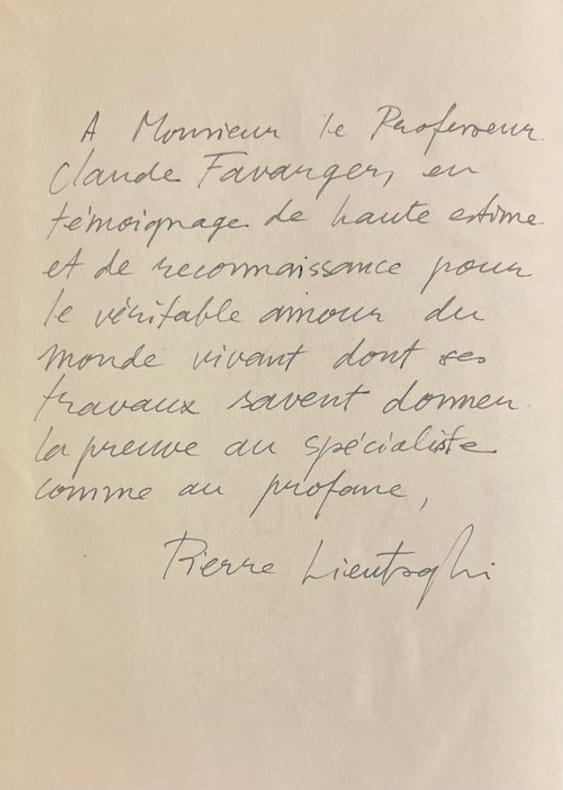 A Monsieur le Professeur
Claude Favarger, en
témoignage de haute estime
et de reconnaissance pour
le véritable amour du
monde vivant dont ses
travaux savent donner
la preuve au spécialiste
comme au profane,
Pierre Lieutaghi